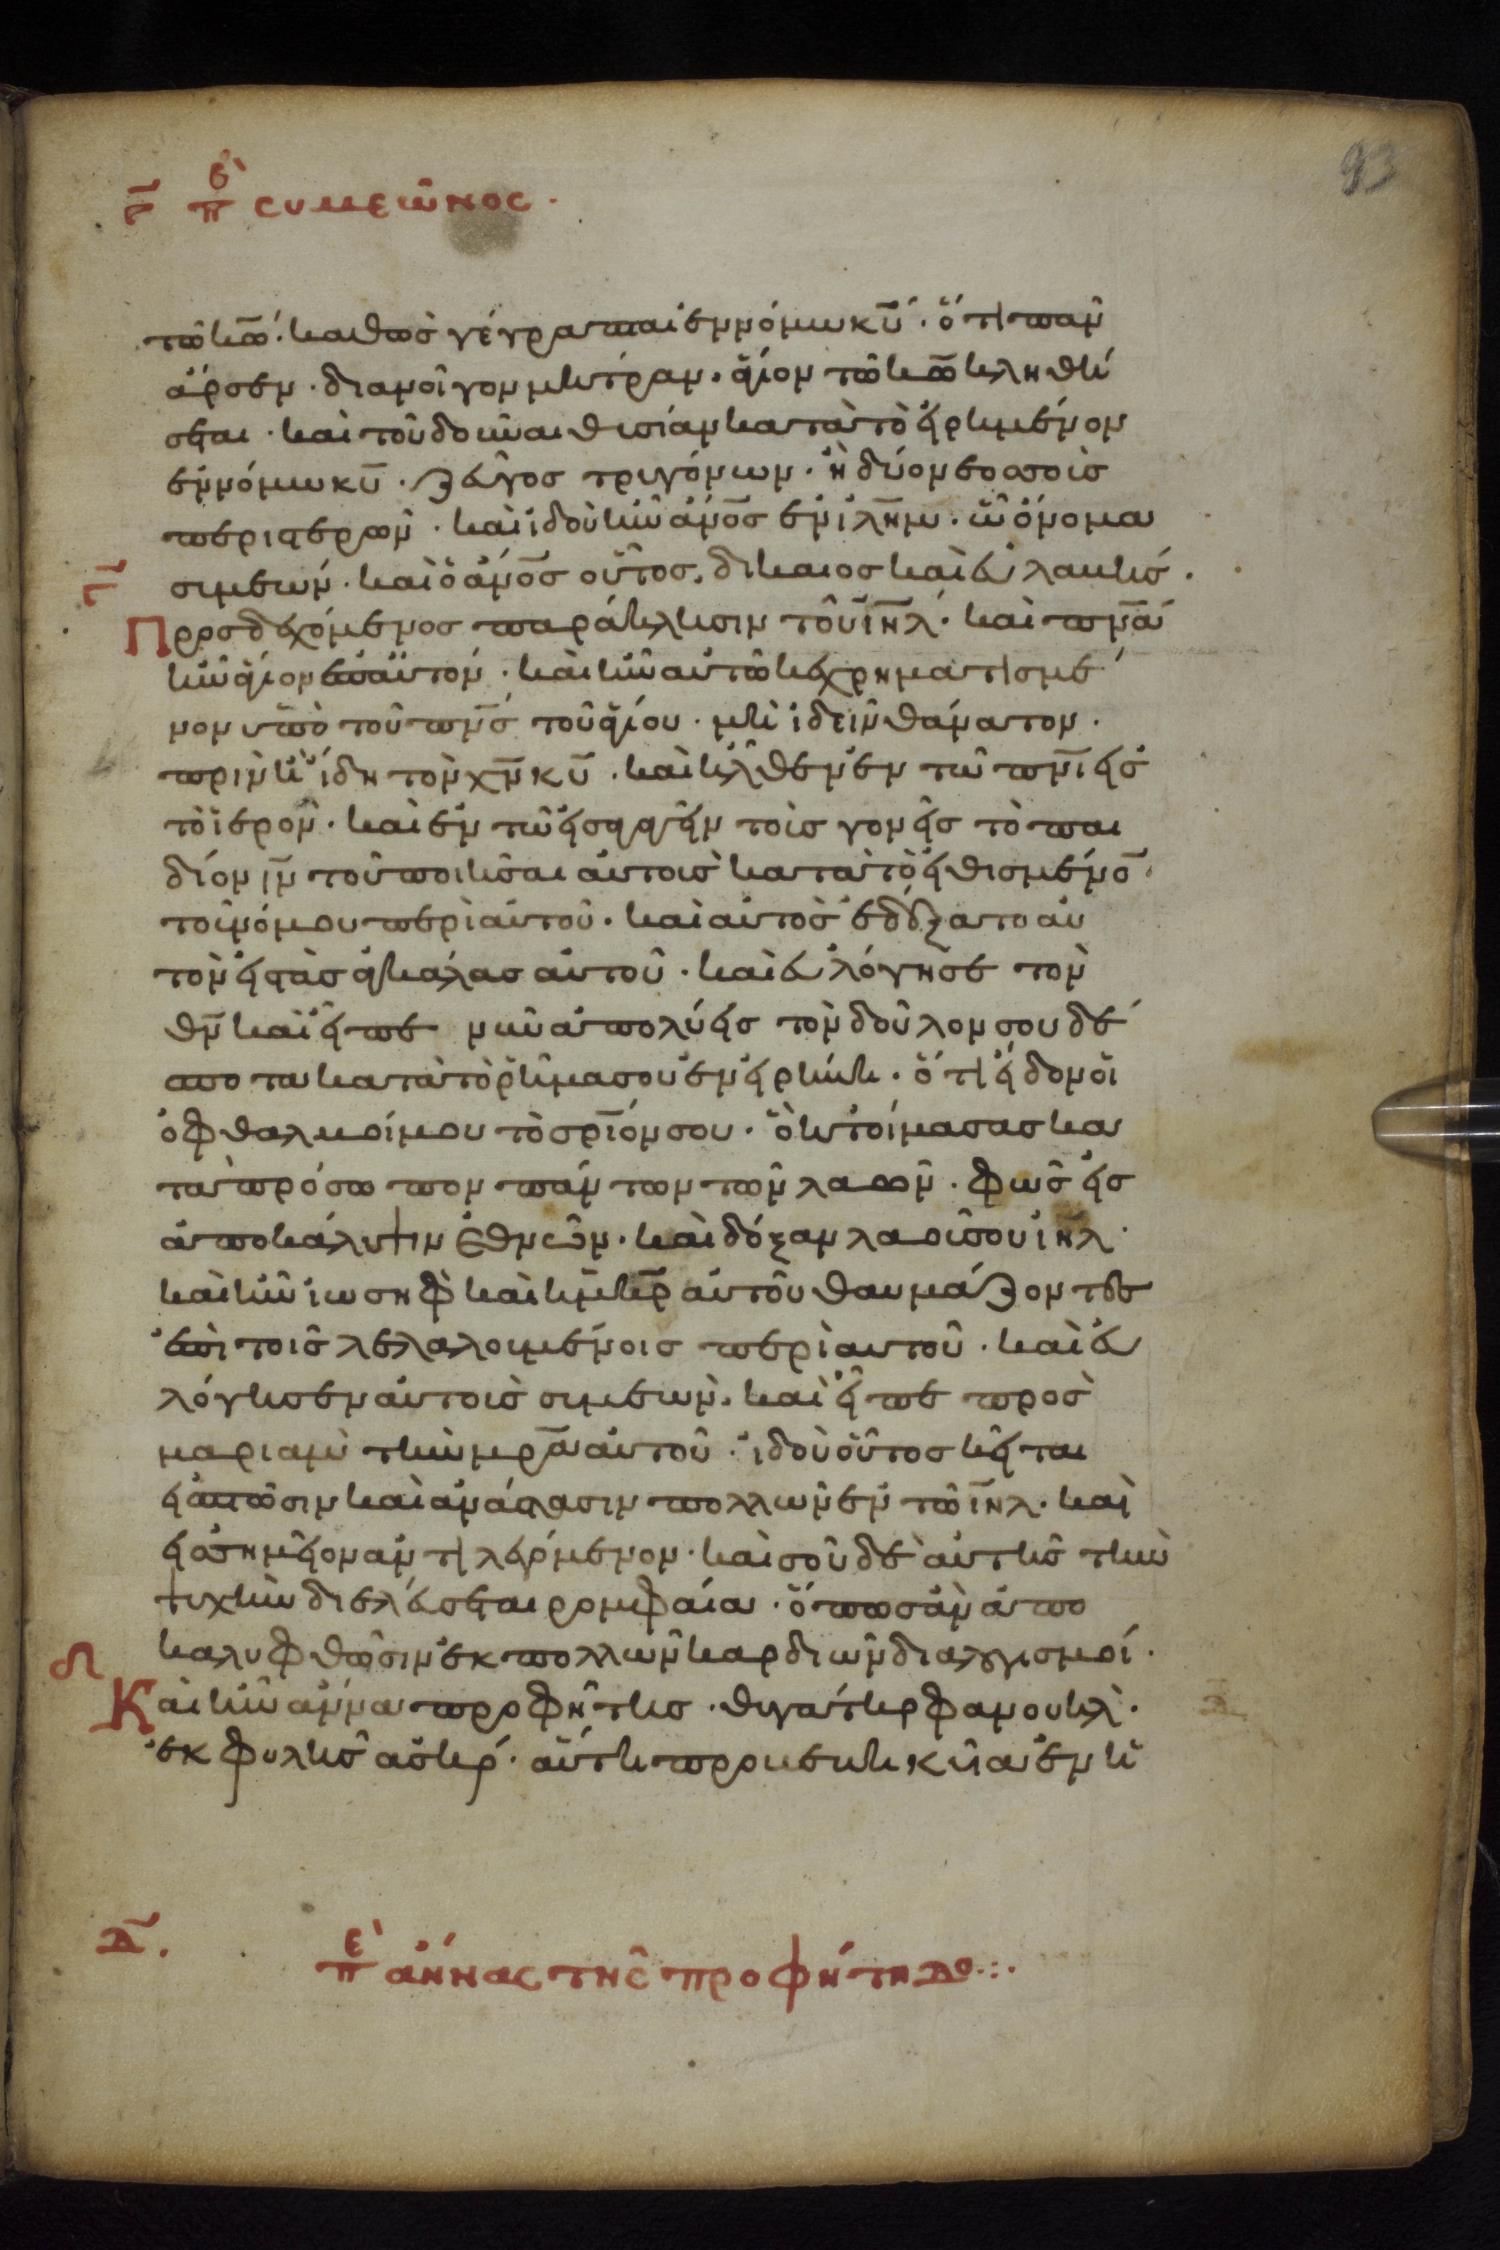 93
γ̄ πὲ συμεῶνος ·
τῶ κω̄. καθὼς γέγραπται ἐν νόμω κῡ· ὅτι παν
ἄρσεν · διανοῖγον μήτραν. ἅγιον τῶ κω̄ κληθή
σεται · καὶ τοῦ δοῦναι θυσίαν κατὰ τὸ εἰρημένον
ἐν νόμω κῡ · ζεῦγος τρυγόνων · ἢ δύο νεοσσοὺς
περιστερῶν · καὶ ἰδοὺ ἦν ἄνο̄ς ἐν ἰλη̄μ · ὧ ὄνομα
σιμεών · καὶ ὁ ἄνο̄ς οὗτος. δίκαιος καὶ εὐλαβής ·
Προσδεχόμενος παράκλησιν τοῦ ῑη̄λ · καὶ πνᾱ
ἦν ἅγιον ἐπ αὐτόν · καὶ ἦν αὐτῶ κεχρηματισμέ
νον ὑπὸ τοῦ πνς̄ τοῦ ἁγίου · μὴ ἰδεῖν θάνατον ·
πρὶν ἢ ἴδη τὸν χν̄ κῡ · καὶ ἦλθεν ἐν τῶ πνῑ εἰς
τὸ ἱερὸν · καὶ ἐν τῶ εἰσαγαγεῖν τοὺς γονεῖς τὸ παι
δίον ιν̄ τοῦ ποιῆσαι αὐτοὺς κατὰ τὸ εἰθισμένο̄
τοῦ νόμου περὶ αὐτοῦ · καὶ αὐτὸς ἐδέξατο αὐ
τὸν εἰς τὰς ἀγκάλας αὐτοῦ · καὶ εὐλόγησε τὸν
θν̄ καὶ εἶπε νῦν ἀπολύεις τὸν δοῦλον σου δέ
σποτα κατὰ τὸ ῥῆμα σου ἐν εἰρήνη · ὅτι εἶδον οἱ
ὀφθαλμοί μου τὸ σρῑόν σου · ὃ ἡτοίμασας κα
τὰ πρόσωπον πάντων τῶν λαῶν · φῶς εἰς
ἀποκάλυψιν ἐθνῶν · καὶ δόξαν λαοῦ σου ῑηλ ·
καὶ ἦν ἰωσὴφ καὶ ἡ μη̄ρ αὐτοῦ θαυμάζοντες
ἐπὶ τοῖς λαλουμένοις περὶ αυτοῦ · καὶ εὐ
λόγησεν αὐτοὺς σιμεὼν. καὶ εἶπε προς
μαριὰμ τὴν μρᾱ αὐτοῦ · ἰδοὺ οὗτος κεῖται
εἰς πτῶσιν καὶ ἀνάστασιν πολλῶν ἐν τῶ ῑηλ · καὶ
εἰς σημεῖον ἀντιλεγόμενον · καὶ σοῦ δὲ αὐτῆς τὴν
ψυχὴν διελεύσεται ρομφαία · ὅπως ἂν ἀπο
καλυφθῶσιν ἐκ πολλῶν καρδιῶν διαλογισμοί ·
Καὶ ἦν ἄννα προφῆτις · θυγάτηρ φανουὴλ ·
ἐκ φυλῆς ἀσήρ · αὕτη προβεβηκυῖα ἐν ἡ
δ̄. πὲ ἄννας τῆς προφήτηδο..:.